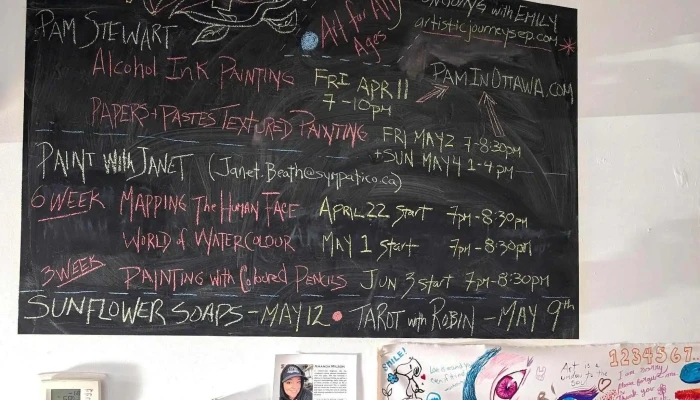 with EMILY
artisticjourneysep.com
PAM STEWART
Art for Any Ages
ALCOHOL INK PAINTING FRI APRIL 11 7-10pm
PAMINOTTAWA.COM
PAPERS+PASTES TEXTURED PAINTING FRI MAY 2 7-8:30pm
+SUN MAY 4 1-4 pm
PAINT with JANET (Janet.Beath@sympatico.ca)
6 WEEK MAPPING The HUMAN FACE APRIL 22 START 7pm-8:30pm
WORLD of WATERCOLOUR MAY 1 START 7pm-8:30pm
3 WEEK PAINTING with Coloured PENCILS JUN 3 start 7pm-8:30pm
SUNFLOWER SOAPS-MAY 12 • TAROT with ROBIN-MAY 9th
SMILE!
Art is a
window to the
Soul
1234567..
I am sorry
Please forgive me
Thank you